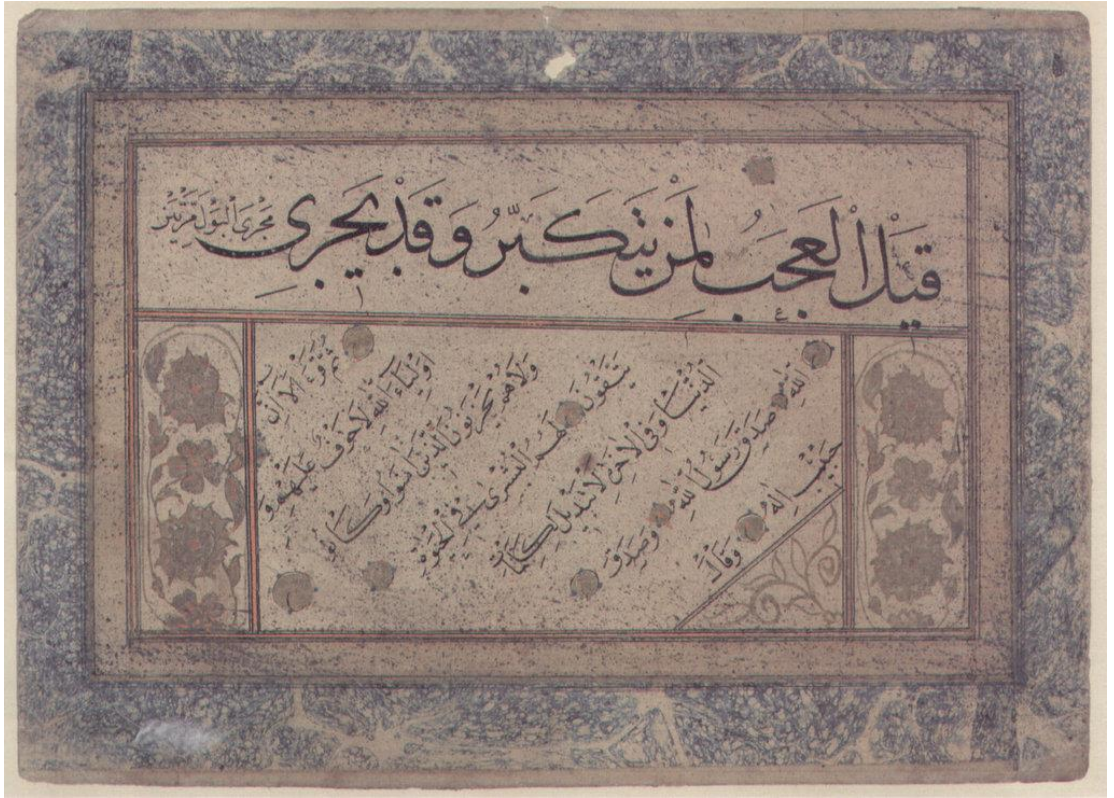 قيل العجب لمن يتكبر وقد يجرى مجرى البول مرتين
الا ان
اولياء الله لا خوف عليهم
ولا هم يحزنون الذين امنوا وكانوا
يتقون لهم البشرى في الحيوة
الدنيا وفي الاخرة لا تبديل لكلمات
الله صدق رسول الله وصدق
حبيب الله وقال